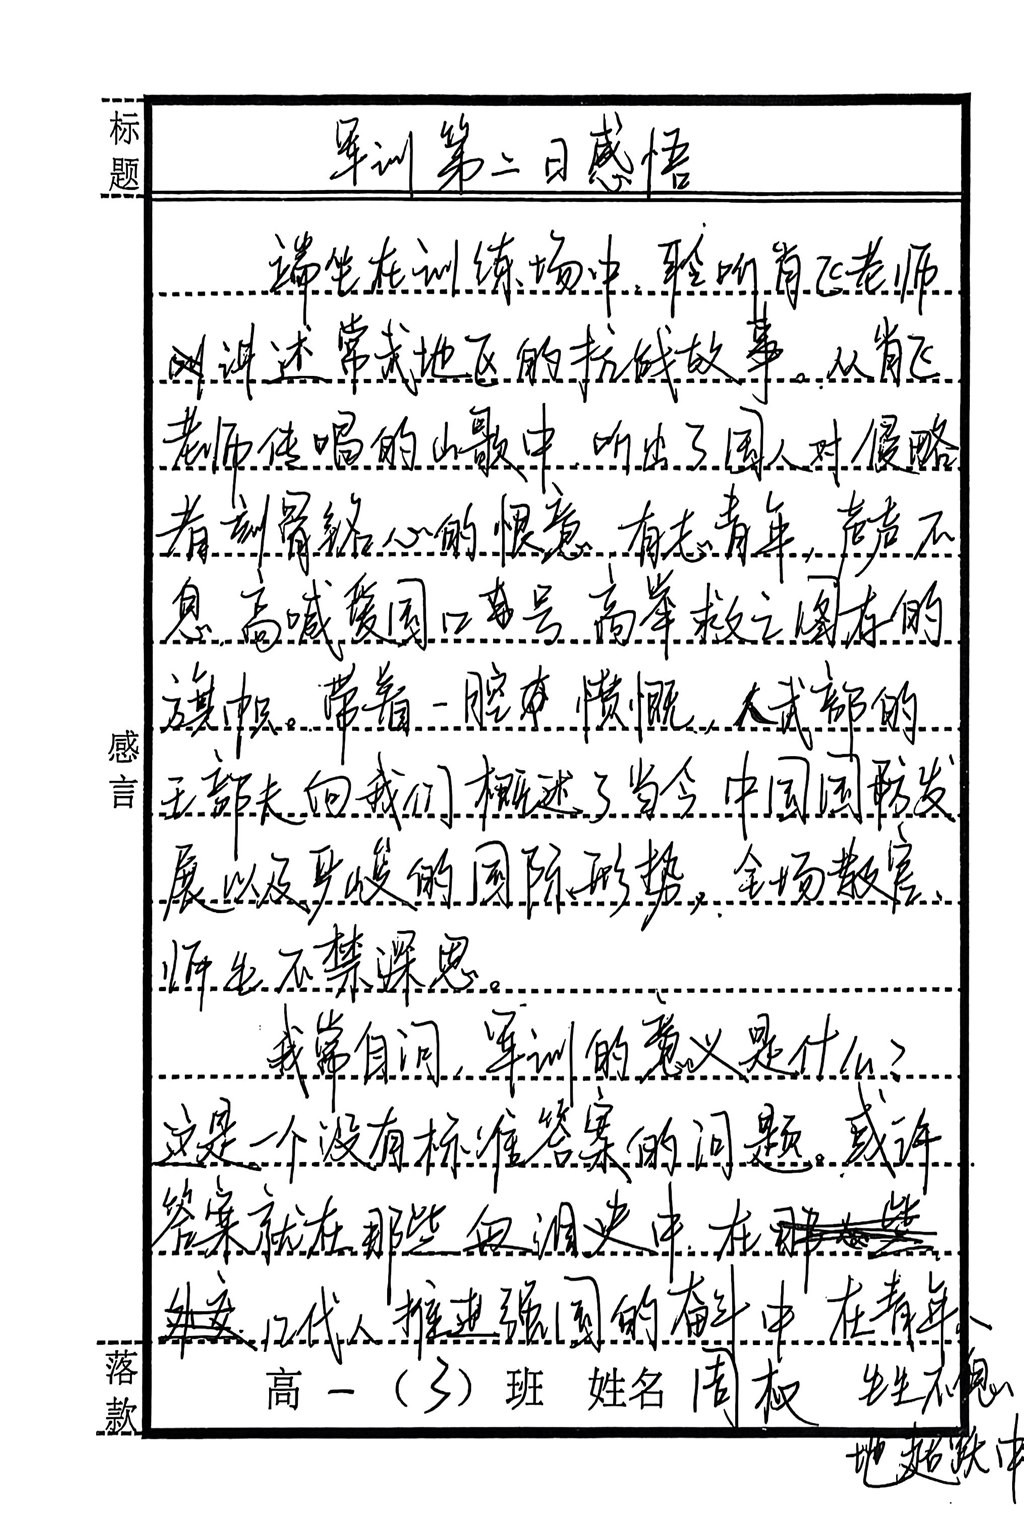 标题
军训第二日感悟
端坐在训练场中，聆听肖飞老师
讲述常武地区的抗战故事。从肖飞
老师传唱的山歌中，听出了国人对侵略
者刻骨铭心的恨意，有志青年，声声不
息，高喊爱国口号，高举救亡图存的
旗帜。带着一腔愤慨，人武部的
王部夫向我们概述了当今中国国防发
展以及严峻的国际形势，全场寂寥，
师生不禁深思。
感言
我常自问，军训的意义是什么？
这是一个没有标准答案的问题。或许
答案就在那些血泪史中，在
几代人推进强国的奋斗中，在青年人
生生不息
地超跃中
落款
高一（3）班 姓名 周权